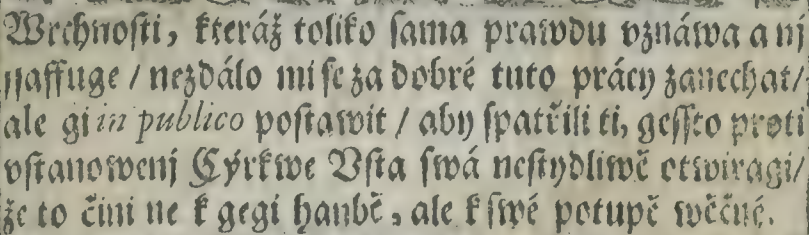 Wrchnoſti, kteráž toliko ſama prawdu vznáwa a nj
ſſaffuge / nezdálo mi ſe za dobré tuto prácy zanechat/
ale gi in publico poſtawit / aby ſpatřili ti, geſſto proti
vſtanowenj Cýrkwe Vſta ſwá neſtydliwě otwiragi/
že to čini ne k gegi hanbě, ale k ſwé potupě wěčné.